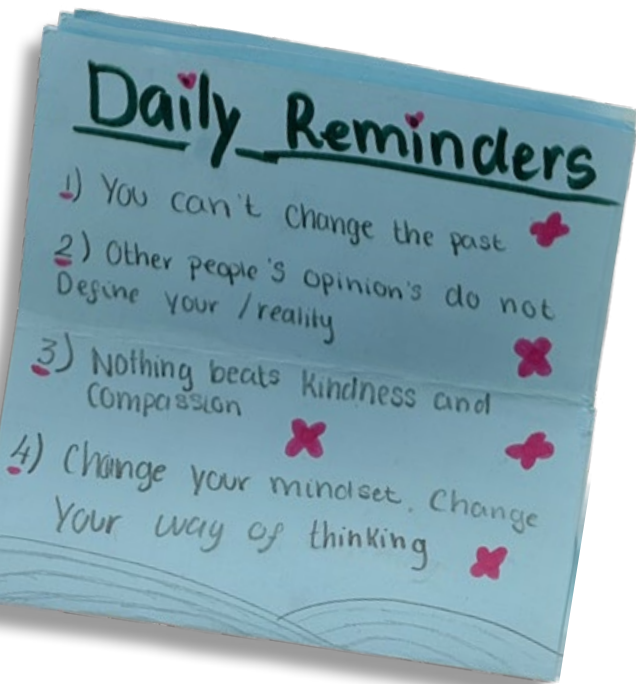 Daily Reminders
1) You can't change the past
2) Other people's opinion's do not
Define your / reality
3) Nothing beats kindness and
compassion
4) Change your mindset. Change
Your way of thinking